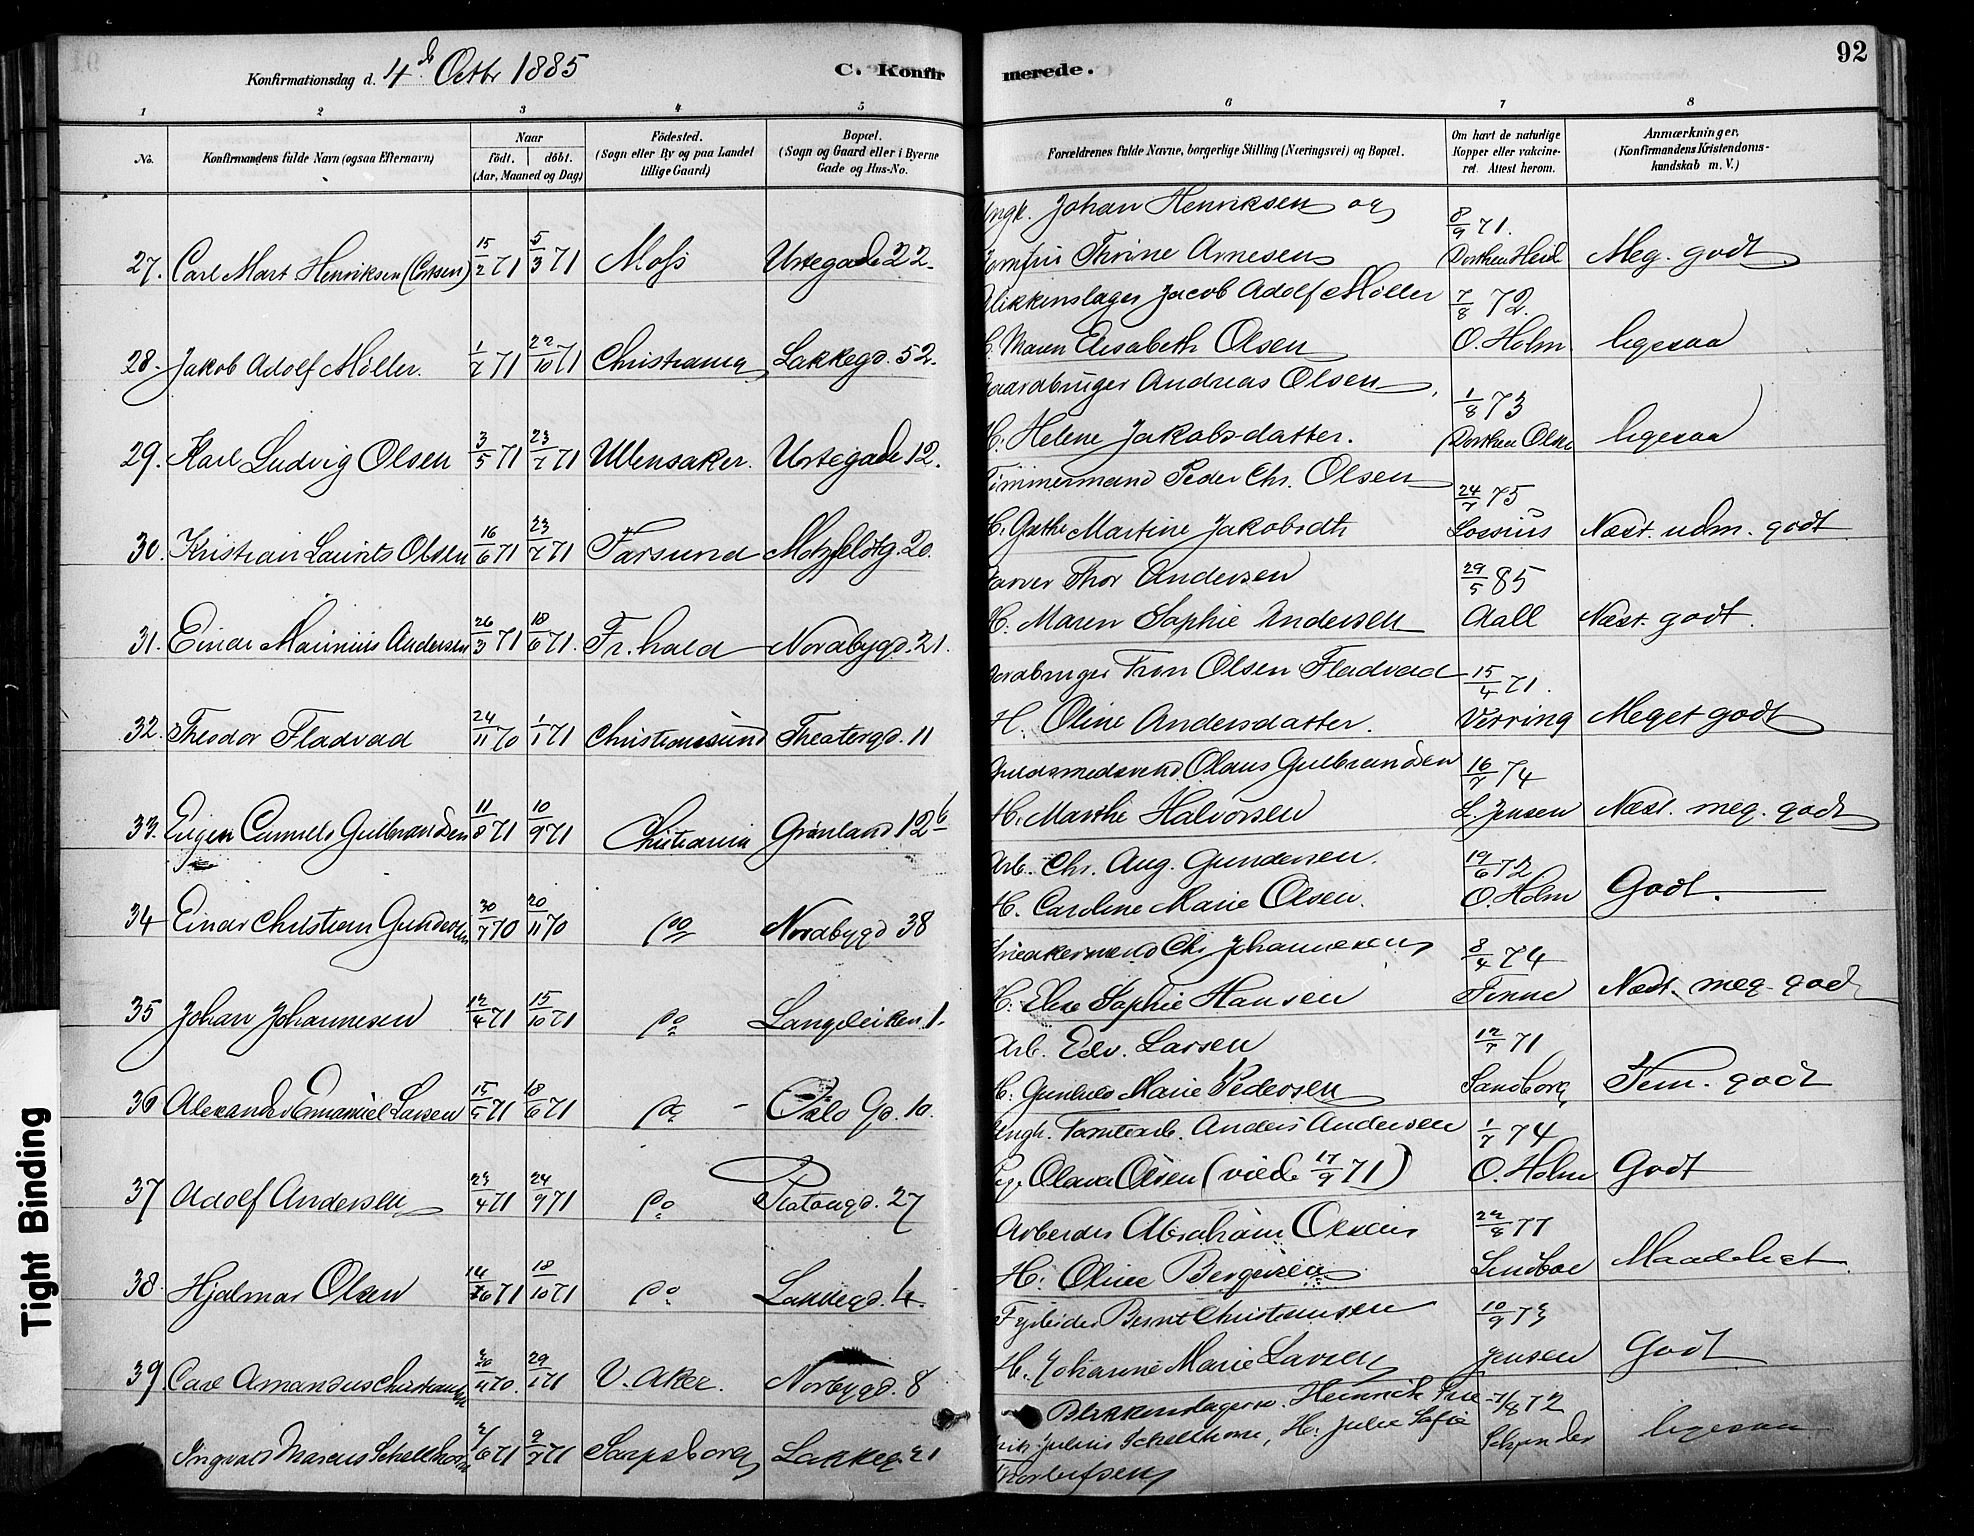 Konfirmationsdag d. 4d Octbr 1885
C. Konfirmerede.
92
1 2 3 4 5 6 7 8
No.
Konfirmandens fulde Navn (ogsaa Efternavn)
Naar
födt. döbt.
(Aar, Maaned og Dag)
Födested.
(Sogn eller By og paa Landet
tillige Gaard)
Bopæl.
(Sogn og Gaard eller i Byerne
Gade og Hus-No.
Forældrenes fulde Navne, borgerlige Stilling (Næringsvei) og Bopæl.
Om havt de naturlige
Kopper eller vakcine-
ret. Attest herom.
Anmærkninger,
(Konfirmandens Kristendoms-
kundskab m. V.)
Ungk. Johan Henriksen og 8/9 71.
27. Carl Mart Henriksen 15/2 71 5/3 71 Moss Urtegade 22. Jomfru Thrine Arnesen Dorthea Heid Meg. godt
Blikkenslager Jacob Adolf Møller 7/8 72.
28. Jakob Adolf Møller. 1/7 71 22/10 71 Christiania Lakkegd. 52. H. Maren Elisabeth Olsen O. Holm ligesaa
Gaardbruger Andreas Olsen 1/8 73
29. Karl Ludvig Olsen 3/5 71 23/7 71 Ullensaker. Urtegade 12. H. Helene Jakobsdatter. Dorthea Olsen ligesaa
Timmermand Peder Chr. Olsen 24/7 75
30. Kristian Laurits Olsen 16/6 71 23/7 71 Farsund Motzfeldtg. 20. H. Grethe Martine Jakobsdtr Lossius Næst. udm. godt
Garver Thor Andersen 29/5 85
31. Einar Marinius Andersen 26/3 71 18/6 71. Fr.hald Nordbygd. 21. H. Maren Sophie Andersen Aall Næst. godt.
Gardbruger Tron Olsen Fladvad 15/4 71.
32. Theodor Fladvad 24/11 70 1/1 71 Christianssund Theatergd. 11 H. Oline Andersdatter. Verring Meget godt
Guldsmedsvend Olaus Gulbrandsen 16/7 74
33. Eugen Gulbrandsen 11/8 71 10/9 71 Christiania Grønland 12b H. Marthe Halvorsen L. Jensen Næst. meg. godt
Arb. Chr. Aug. Gundersen. 19/6 72
34 Einar Christian Gundersen 30/7 70 20/11 70 do Nordbygd 38 H. Caroline Marie Olsen. O. Holm Godt.
Snedkersvend Chr Johannesen 8/4 74
35 Johan Johannesen 12/4 71 15/10 71 do Langleiken 1. H. Elise Sophie Hansen Finne Næst. meg. godt
Arb. Edv. Larsen 12/7 71
36 Alexander Emanuel Larsen 15/5 71 18/6 71 do Oslo Gd. 10. H. Gunhild Marie Pedersen Sandborg Tem. godt
Ungk. Tomtearb. Anders Andersen 1/7 74
37 Adolf Andersen 23/4 71 24/9 71 do Platougd. 27 Pige Olava Olsen (viede 17/9 71) O. Holm Godt
Arbeider Abraham Olsen 22/8 77
38 Hjalmar Olsen 14/6 71 18/10 71 do Lakkegd. 4. H. Oline Bergersen Lindboe Maadeligt
Fyrbøder Bernt Christiansen 10/9 73
39 Carl Amandus Christiansen 20/11 70. 29/1 71 V. Aker. Norbygd. 8 H. Johanne Marie Larsen Jensen Godt
Blikkenslagersv. Heinrich 7/8 72
Ingvald Marcus Schellhorn 2/6 71 9/7 71 Sarpsborg Lakkeg 21 Julius Schellhorn, H. Julie Sofie Schønder ligesaa
Thorleifsen
Tight Binding